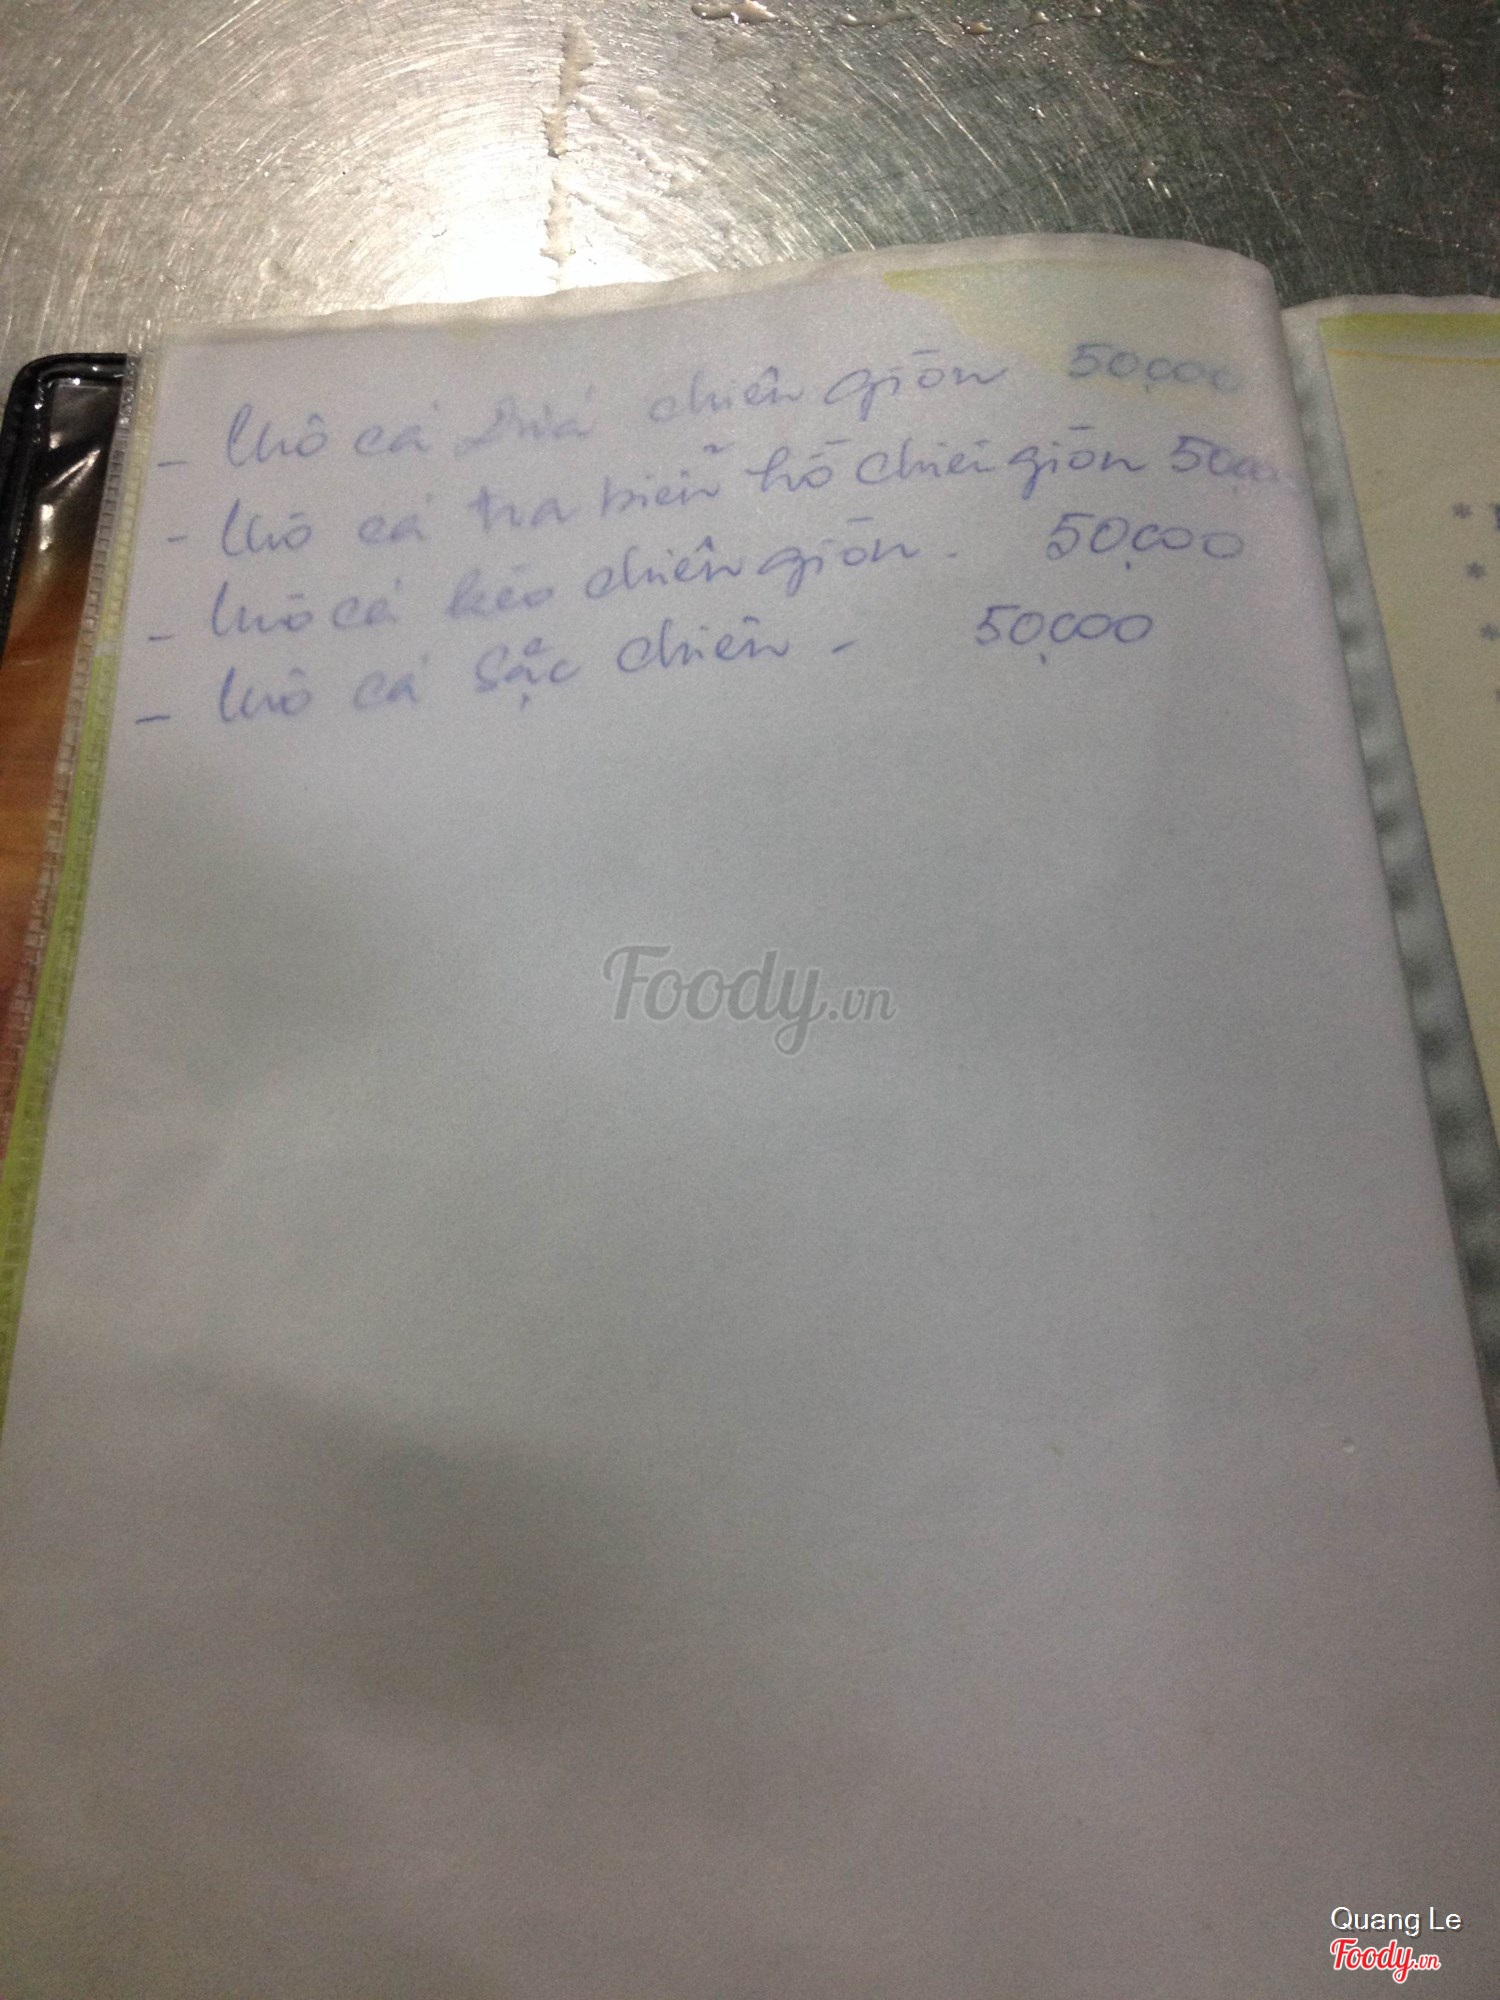 - Khô cá Dứa chiên giòn 50,000
- Khô cá tra biển hồ chiên giòn 50,000
- Khô cá kèo chiên giòn - 50,000
- Khô cá Sặc chiên - 50,000
*
*
*
Foody.vn
Quang Le
Foody.vn